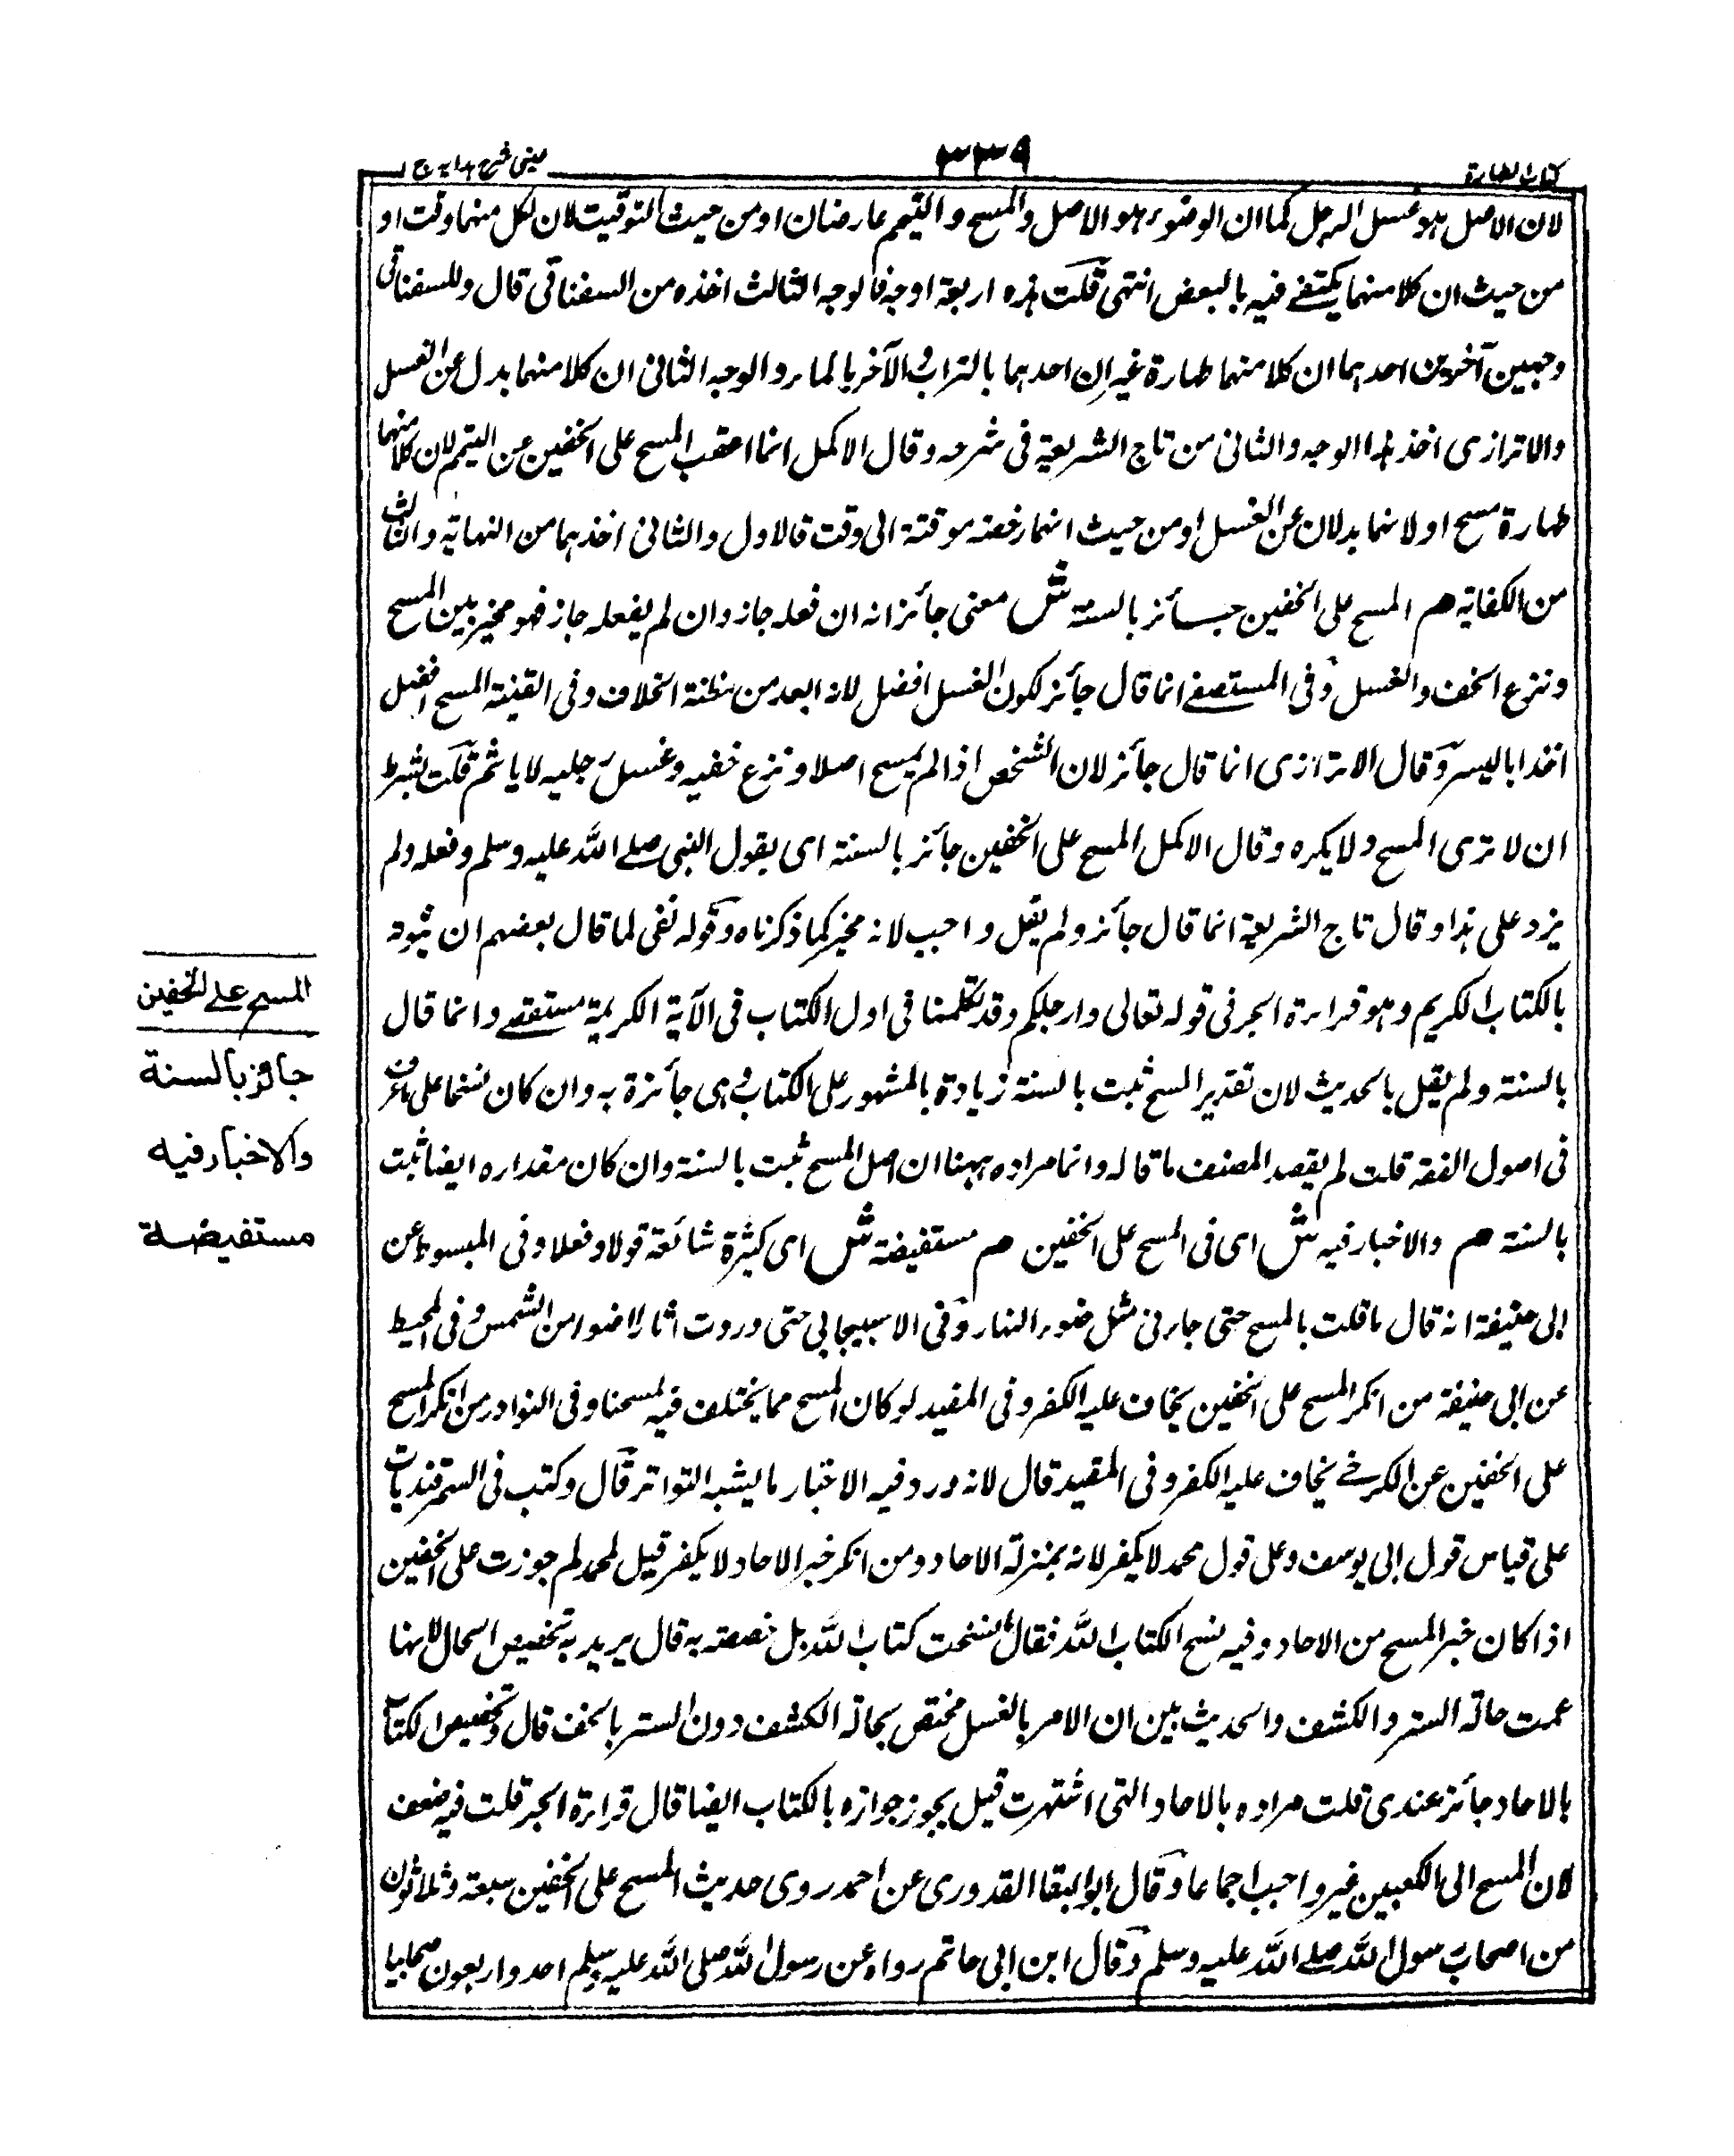 كتاب الطهارة
٣٣٩
عينى شرح هدايه ج ١
لان الاصل هو غسل الرجل كما ان الوضوء هو الاصل والمسح و التيمم عارضان او من حيث التوقيت لان لكل منهما وقت او
من حيث ان كلا منهما يكتفى فيه بالبعض انتهى قلت هذه اربعة اوجه فالوجه الثالث اخذه من السغناقى قال وللسغناقى
وجهين آخرين احدهما ان كلا منهما طهارة غير ان احدهما بالتراب والآخر بالماء و الوجه الثانى ان كلا منهما بدل عن الغسل
والاترازى اخذ هذا الوجه والثانى من تاج الشريعة فى شرحه وقال الاكمل انما اعقب المسح على الخفين عن التيمم لان كلا منهما
طهارة مسح او لانهما بدلان عن الغسل او من حيث انهما رخصة موقتة الى وقت فالاول والثانى اخذهما من النهاية والثالث
من الكفاية هم المسح على الخفين جائز بالسنة ش معنى جائز انه ان فعله جاز وان لم يفعله جاز فهو مخير بين المسح
ونزع الخف والغسل وفى المستصفى انما قال جائز لكون الغسل افضل لانه ابعد من مظنة الخلاف وفى القنية المسح افضل
اخذا باليسر وقال الاترازى انما قال جائز لان الشخص اذا لم يمسح اصلا ونزع خفيه وغسل رجليه لا ياثم قلت بشرط
ان لا ترى المسح ولا يكره وقال الاكمل المسح على الخفين جائز بالسنة اى بقول النبى صلى الله عليه وسلم وفعله ولم
يزد على هذا وقال تاج الشريعة انما قال جائز ولم يقل واجب لانه مخير كما ذكرناه وقوله نفى لما قال بعضهم ان ثبوته
بالكتاب الكريم وهو قراءة الجر فى قوله تعالى وارجلكم وقد تكلمنا فى اول الكتاب فى الآية الكريمة مستقصى وانما قال
بالسنة ولم يقل بالحديث لان تقدير المسح ثبت بالسنة زيادة بالمشهور على الكتاب وهى جائزة به وان كان نسخا على ما عرف
فى اصول الفقه قلت لم يقصد المصنف ما قاله وانما مراده ههنا ان اصل المسح ثبت بالسنة وان كان مقداره ايضا ثبت
بالسنة هم والاخبار فيه ش اى فى المسح على الخفين هم مستفيضة ش اى كثيرة شائعة قولا وفعلا وفى المبسوط عن
ابى حنيفة انه قال ما قلت بالمسح حتى جاءنى مثل ضوء النهار وفى الاسبيجابى حتى وردت اثار اضوا من الشمس وفى المحيط
عن ابى حنيفة من انكر المسح على الخفين يخاف عليه الكفر وفى المفيد لو كان المسح مما يختلف فيه لمسحنا وفى النوادر من انكر المسح
على الخفين عن الكرخى يخاف عليه الكفر وفى المفيد قال لانه ورد فيه الاخبار ما يشبه التواتر قال وكتب فى السمرقنديات
على قياس قول ابى يوسف وعلى قول محمد لا يكفر لانه بمنزلة الاحاد ومن انكر خبر الاحاد لا يكفر قيل لمحمد لم جوزت على الخفين
اذا كان خبر المسح من الاحاد وفيه نسخ الكتاب الله فقال ما نسخت كتاب الله بل خصصته به قال يريد به تخصيص الحال لانها
عمت حالة الستر و الكشف والحديث بين ان الامر بالغسل مختص بحالة الكشف دون الستر بالخف قال وتخصيص الكتاب
بالاحاد جائز عندى قلت مراده بالاحاد التى اشتهرت قيل يجوز جوازه بالكتاب ايضا قال قراءة الجر قلت فيه ضعف
لان المسح الى الكعبين غير واجب اجماعا وقال ابو البقا القدورى عن احمد روى حديث المسح على الخفين سبعة وثلاثون
من اصحاب رسول الله صلى الله عليه وسلم وقال ابن ابى حاتم رواه عن رسول الله صلى الله عليه وسلم احد واربعون صحابيا
المسح على الخفين
جائز بالسنة
والاخبار فيه
مستفيضة